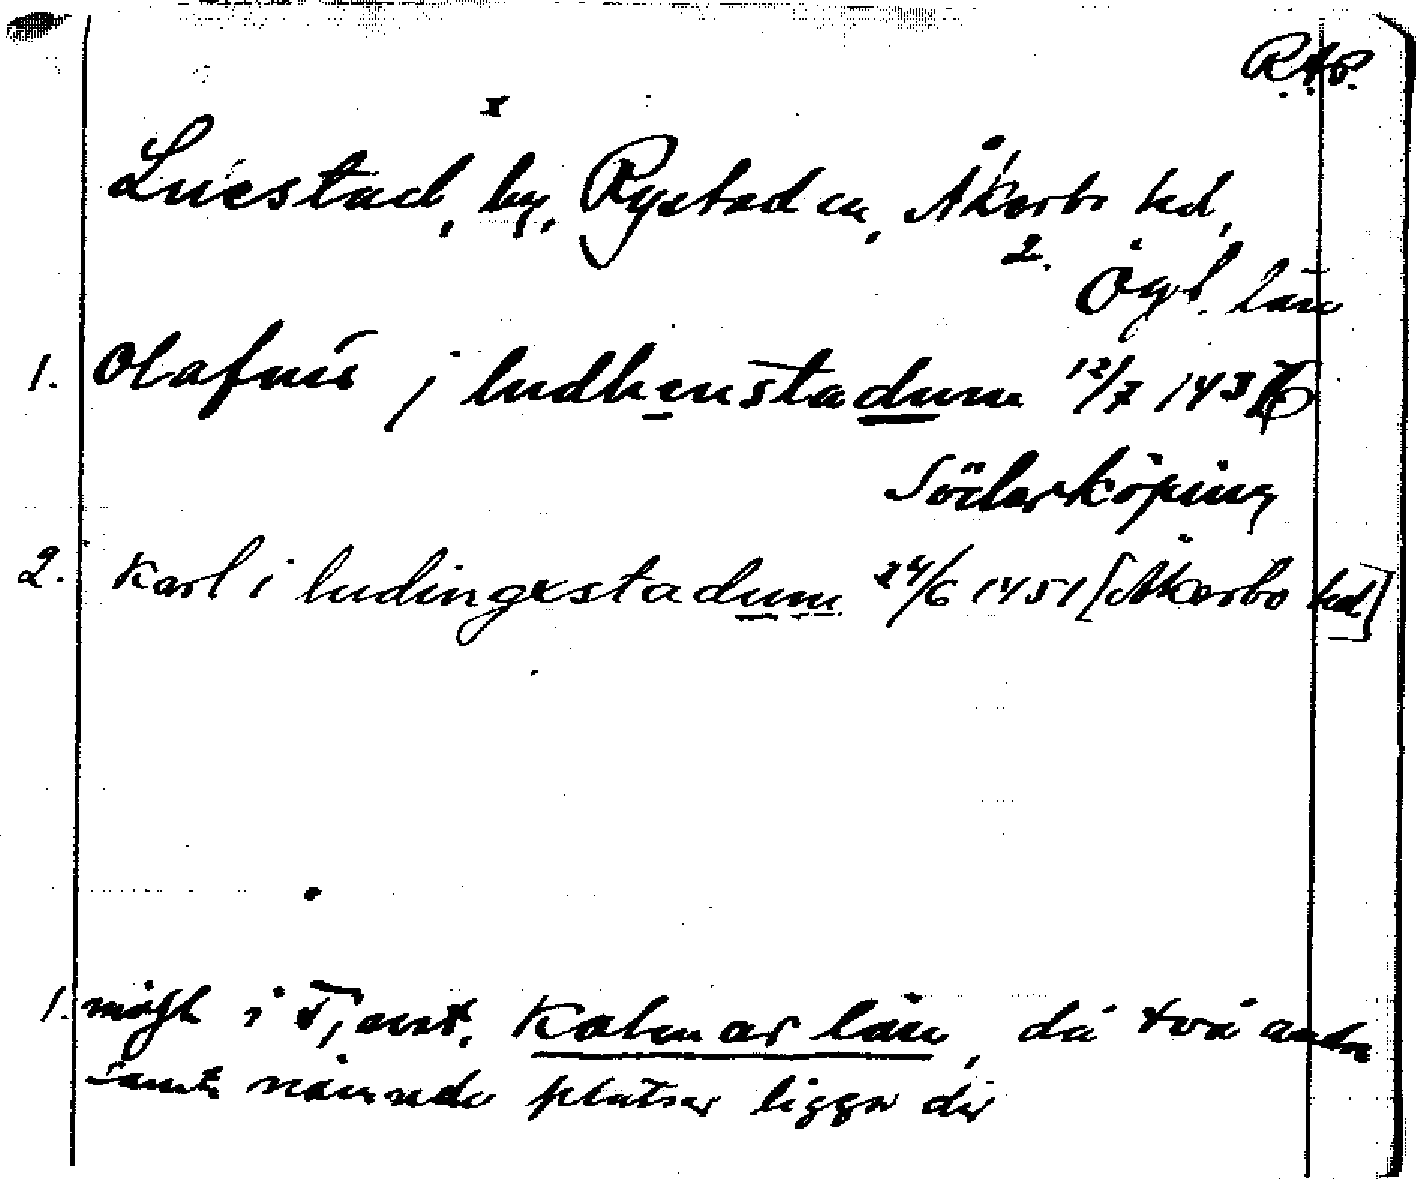 R.A.P.
x
Luestad, by, Rystaden, Åkerbo hd,
2. Ögl. län
1. Olafuus j ludhenstadum 12/7 1436
Söderköping
2. Karl i ludingxstadum 24/6 1451 [Åkerbo hd]
1. möjl i Tjust, Kalmar län, då två andra
samt. nämnda platser ligga där